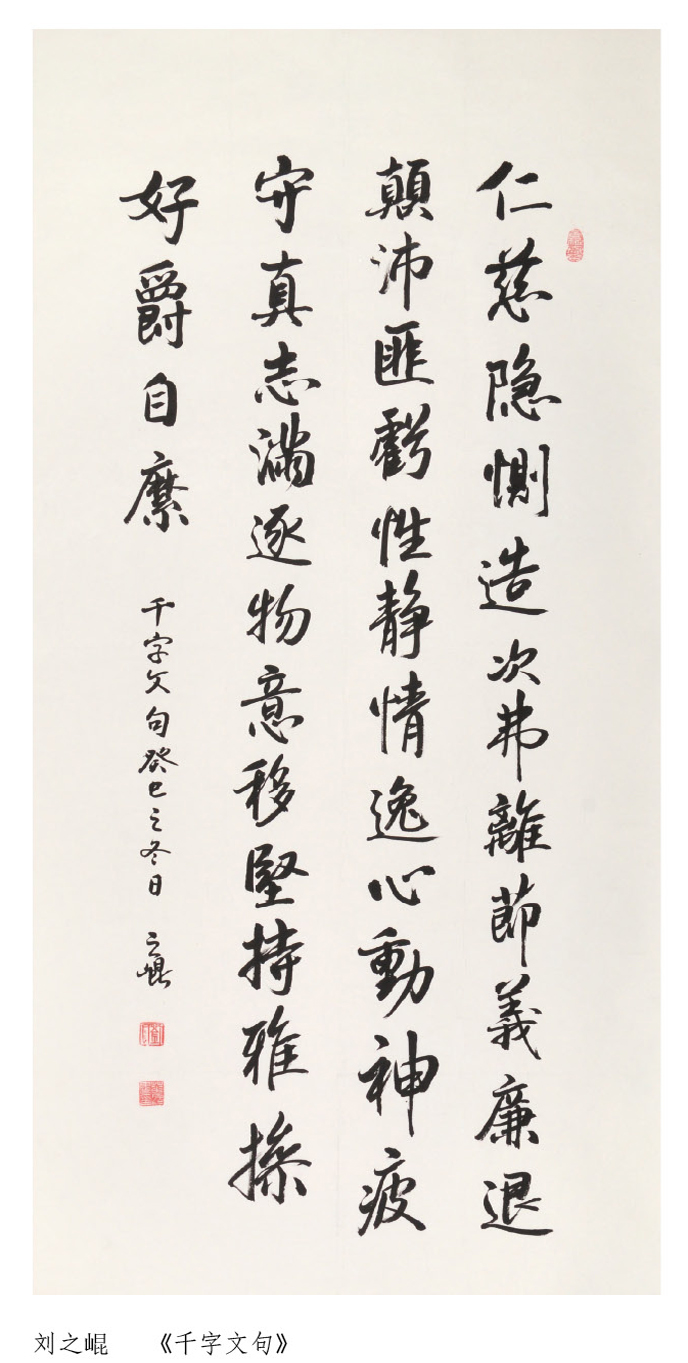 仁慈隐恻造次弗離節義廉退
顛沛匪虧性静情逸心動神疲
守真志滿逐物意移堅持雅操
好爵自縻
千字文句癸巳之冬日 之崐
刘之崐 《千字文句》